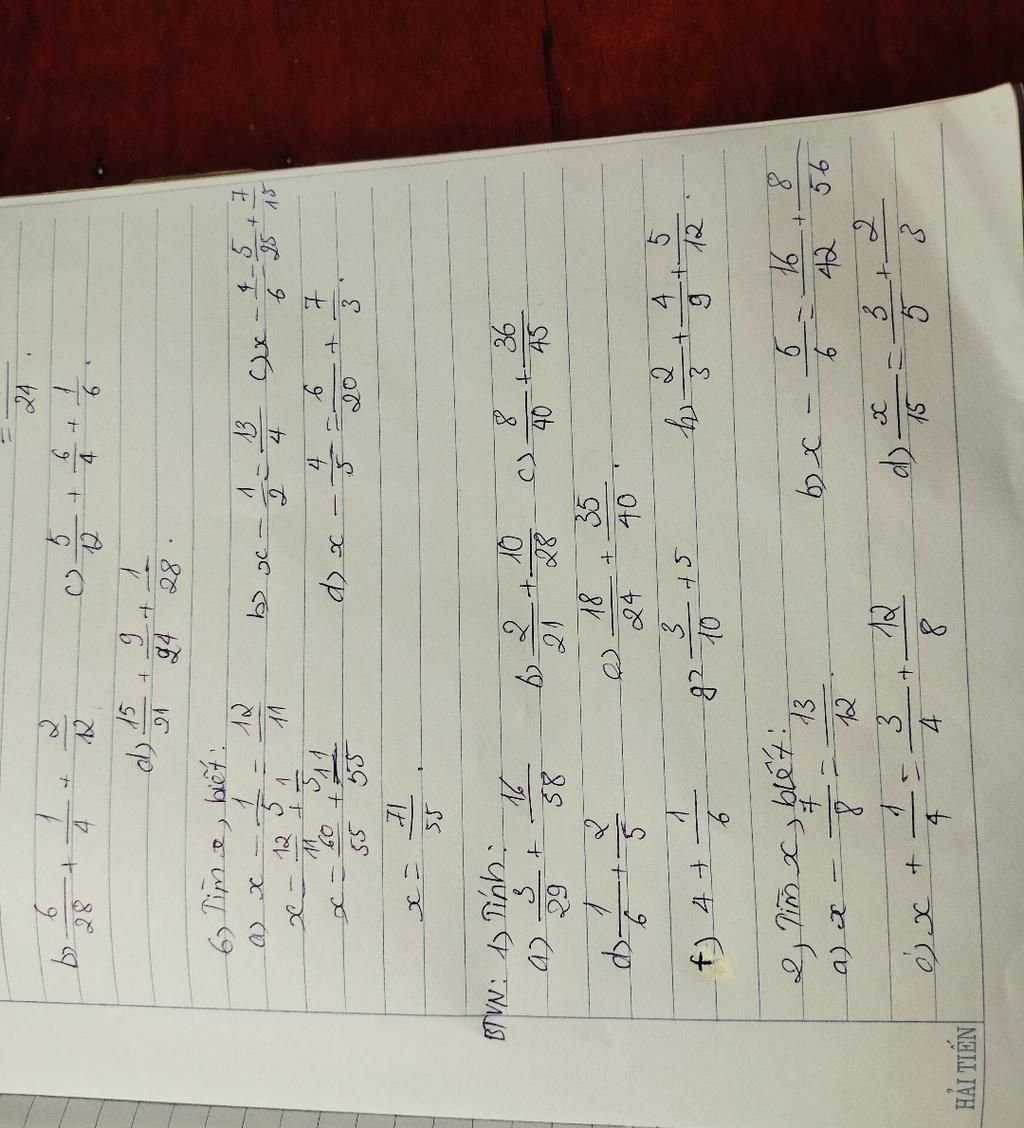 = — / 24 .
b) 6/28 + 1/4 + 2/12 c) 5/12 + 6/4 + 1/6 .
d) 15/21 + 9/24 + 1/28 .
6) Tìm x, biết:
a) x - 1/5 = 12/11 b) x - 1/2 = 13/4 c) x - 1/6 = 5/25 + 7/15
x = 12/11 + 1/5 d) x - 4/5 = 6/20 + 7/3 .
x = 60/55 + 11/55
x = 71/55 .
BTVN: 1) Tính:
a) 3/29 + 16/58 b) 2/21 + 10/28 c) 8/40 + 36/45
d) 1/6 + 2/5 e) 18/24 + 35/40 .
f) 4 + 1/6 g) 3/10 + 5 h) 2/3 + 4/9 + 5/12 .
2) Tìm x, biết:
a) x - 7/8 = 13/12 b) x - 5/6 = 16/42 + 8/56
c) x + 1/4 = 3/4 + 12/8 d) x/15 = 3/5 + 2/3
HẢI TIẾN